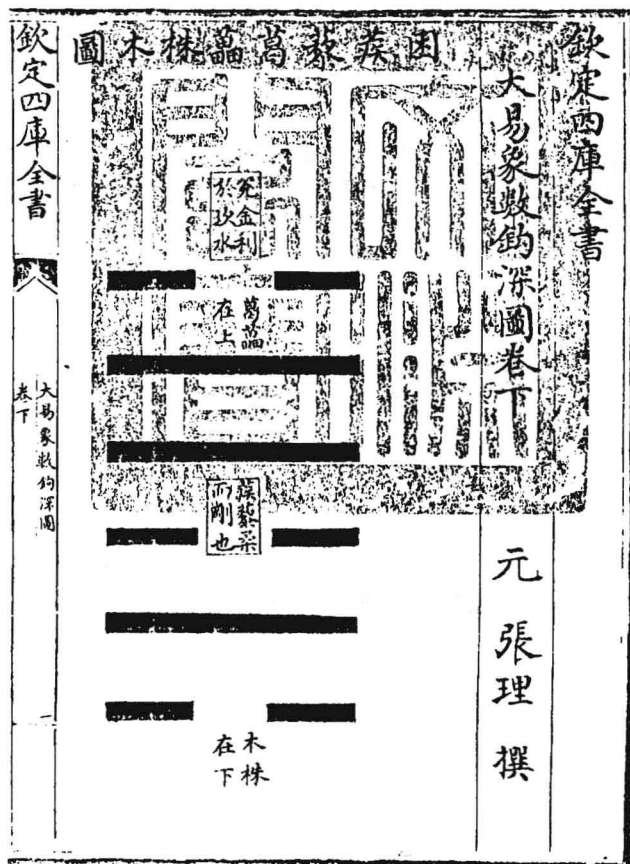 欽定四庫全書
大易象數鈎深圖卷下
元 張理 撰
困蒺蔾葛藟株木圖
兊金利
於坎水
葛藟
在上
蒺蔾柔
而剛也
木株
在下
欽定四庫全書
大易象數鈎深圖
卷下
一